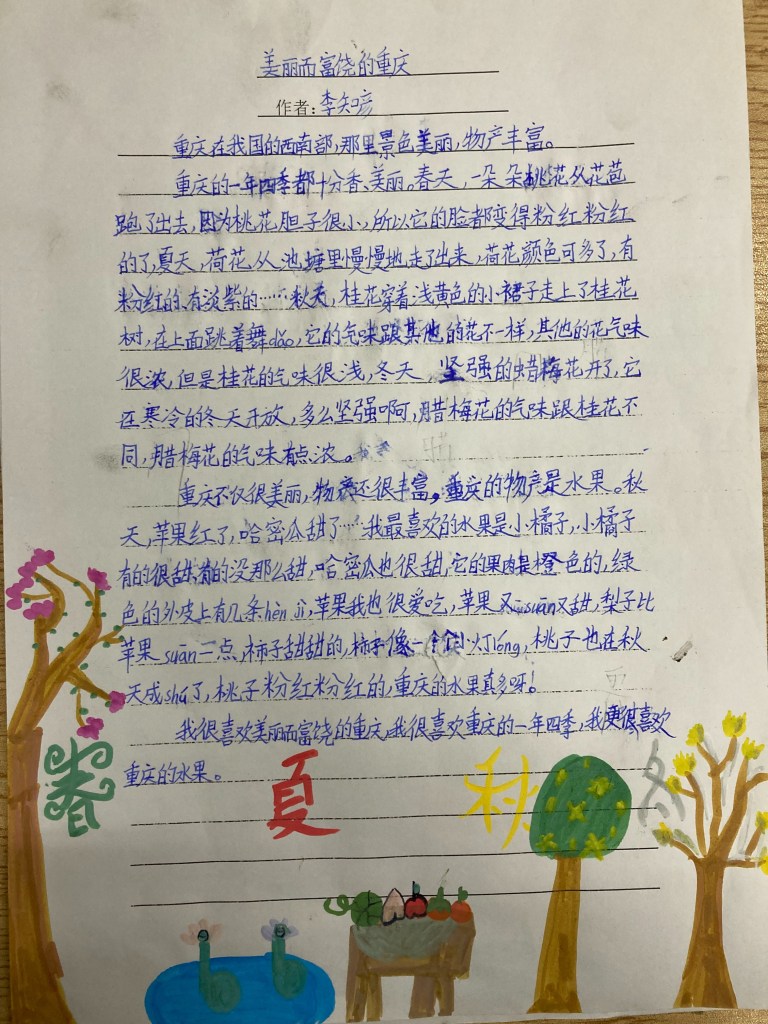 美丽而富饶的重庆
作者:李知彦
重庆在我国的西南部,那里景色美丽,物产丰富。
重庆的一年四季都十分香、美丽。春天,一朵朵桃花从花苞
跑了出去,因为桃花胆子很小,所以它的脸都变得粉红粉红
的了,夏天,荷花从池塘里慢慢地走了出来,荷花颜色可多了,有
粉红的、有淡紫的……秋天,桂花穿着浅黄色的小裙子走上了桂花
树,在上面跳着舞dǎo,它的气味跟其他的花不一样,其他的花气味
很浓,但是桂花的气味很浅,冬天,坚强的蜡梅花开了,它
在寒冷的冬天开放,多么坚强啊,腊梅花的气味跟桂花不
同,腊梅花的气味有点浓。
重庆不仅很美丽,物产还很丰富,重庆的物产是水果。秋
天,苹果红了,哈密瓜甜了……我最喜欢的水果是小橘子,小橘子
有的很甜,有的没那么甜,哈密瓜也很甜,它的果肉是橙色的,绿
色的外皮上有几条hèn jì,苹果我也很爱吃,苹果又suān又甜,梨子比
苹果suān一点,柿子甜甜的,柿子像一个个小灯lóng,桃子也在秋
天成shú了,桃子粉红粉红的,重庆的水果真多呀!
我很喜欢美丽而富饶的重庆,我很喜欢重庆的一年四季,我更很喜欢
重庆的水果。
春 夏 秋 冬